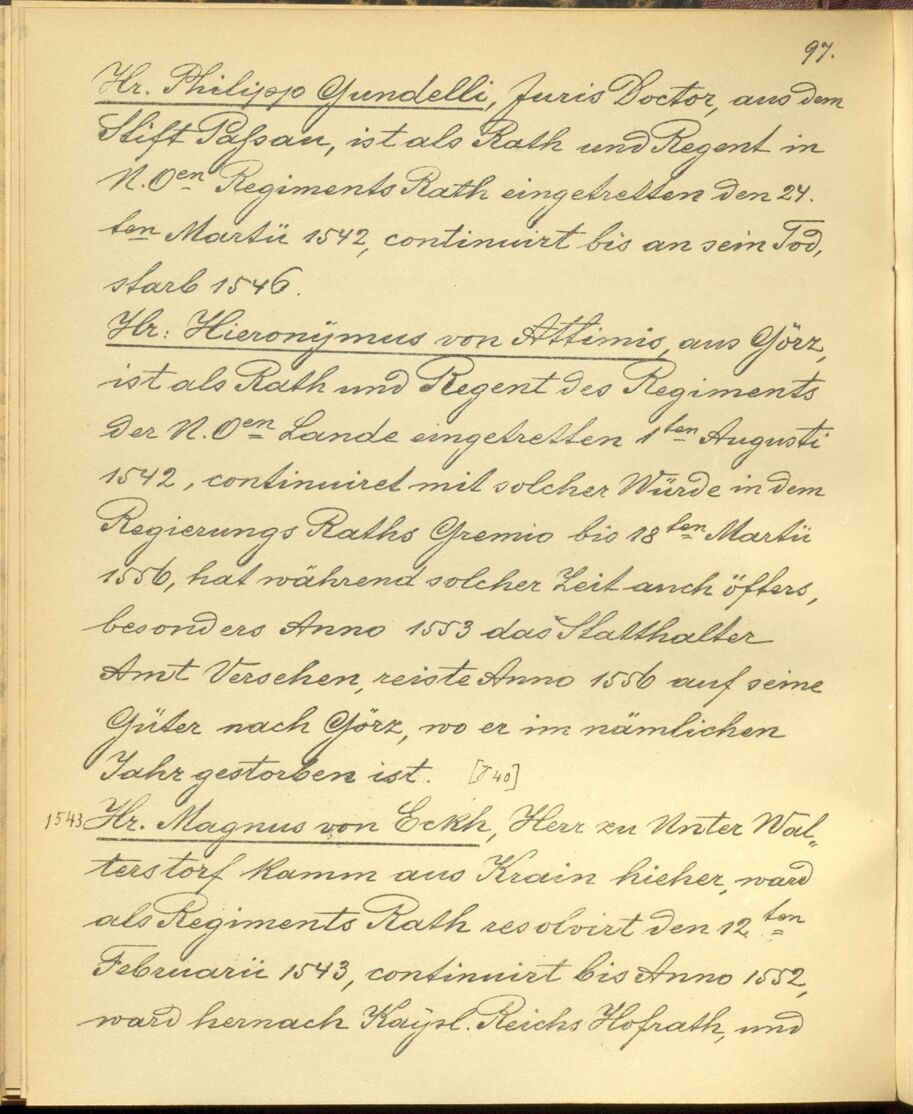 97.
Hr. Philipp Gundelli, Juris Doctor, aus dem
Stift Paßau, ist als Rath und Regent in
N. Oen Regiments Rath eingetretten den 24.
ten Martii 1542, continuirt bis an sein Tod,
starb 1546.
Hr: Hieronÿmus von Attimis, aus Görz,
ist als Rath und Regent des Regiments
der N. Oen Lande eingetretten 1ten Augusti
1542, continuiret mit solcher Würde in dem
Regierungs Raths Gremio bis 18ten Martii
1556, hat während solcher Zeit auch öfters,
besonders Anno 1553 das Statthalter
Amt Versehen, reiste Anno 1556 auf seine
Güter nach Görz, wo er im nämlichen
Jahr gestorben ist. [ 40]
1543 Hr. Magnus von Eckh, Herr zu Unter Wal„
terstorf kamm aus Krain hieher, ward
als Regiments Rath resolvirt den 12ten
Februarii 1543, continuirt bis Anno 1552,
ward hernach Kaÿsl. Reichs Hofrath, und